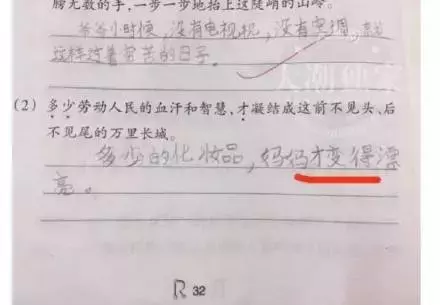 膀无数的手，一步一步地抬上这陡峭的山岭。
爷爷小时候，没有电视机，没有空调，就
这样过着穷苦的日子。
(2) 多少劳动人民的血汗和智慧，才凝结成这前不见头、后
不见尾的万里长城。
多少的化妆品，妈妈才变得漂
亮。
R 32